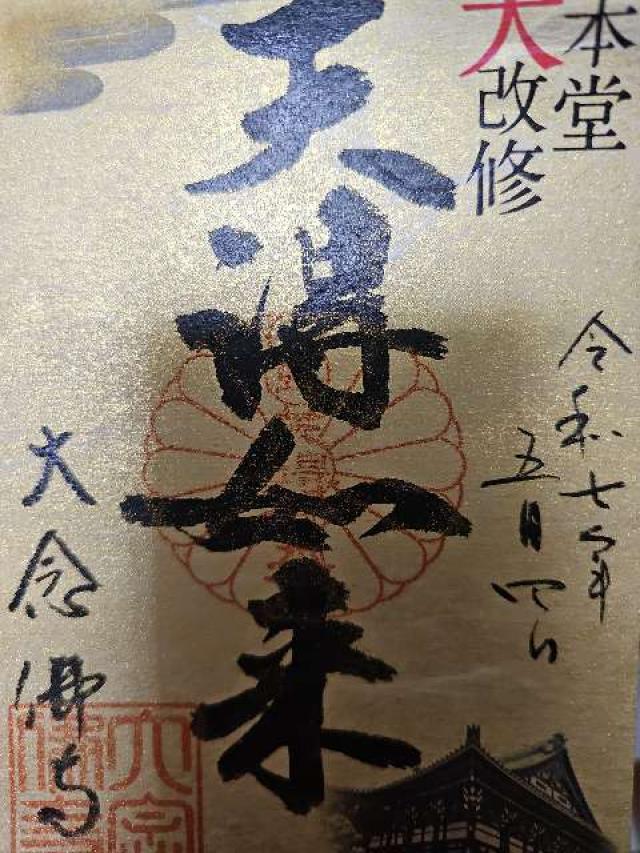 本堂
大改修
令和七年
五月四日
天得如来
大念佛寺